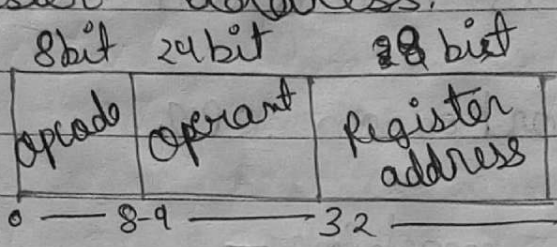 8bit 24bit 8 bit
opcode operant Register
address
0 — 8-9 — 32 —